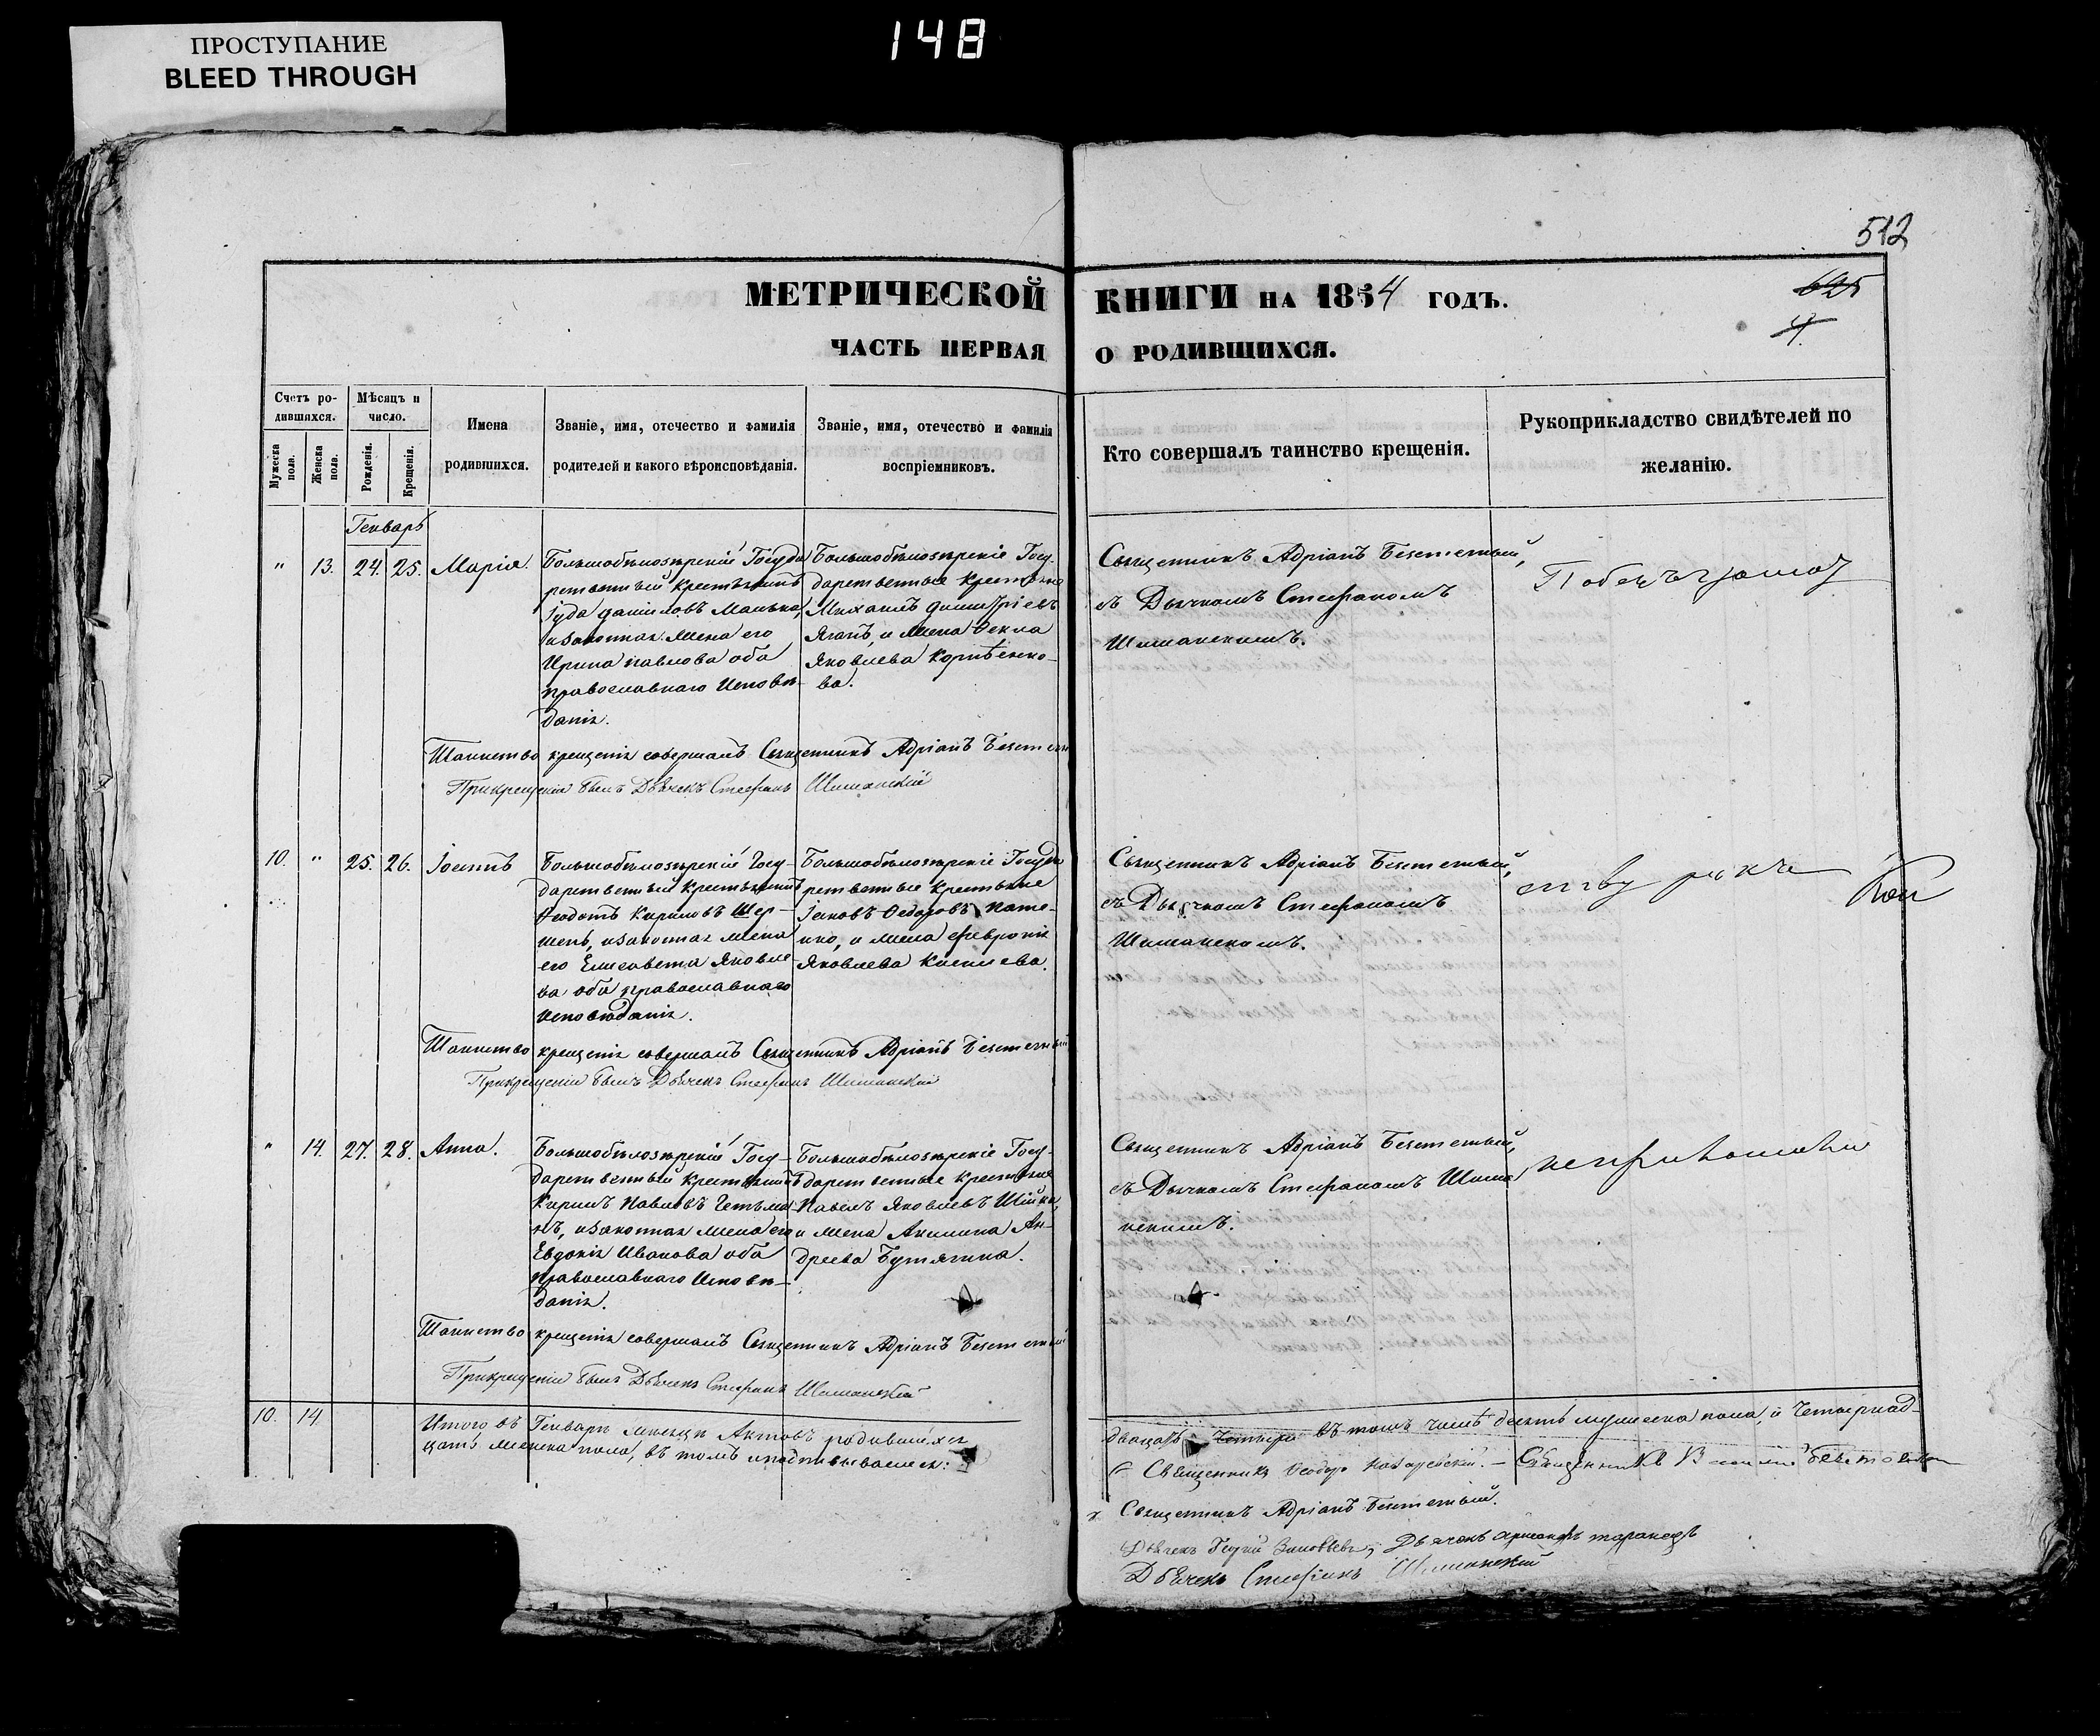 ПРОСТУПАНИЕ
BLEED THROUGH
148
512
625
4
МЕТРИЧЕСКОЙ КНИГИ НА 1854 ГОДЪ.
ЧАСТЬ ПЕРВАЯ О РОДИВШИХСЯ.
Счетъ ро-
дившихся.
Мужеска пола.
Женска пола.
Мѣсяцъ и
число.
Рожденія.
Крещенія.
Имена
родившихся.
Званіе, имя, отечество и фамилія
родителей и какого вѣроисповѣданія.
Званіе, имя, отечество и фамилія
воспріемниковъ.
Кто совершалъ таинство крещенія.
Рукоприкладство свидѣтелей по
желанію.
Генварь
" 13. 24. 25. Марія.
Большобѣлозѣрскій Госуда
рственный крестьянинъ
Іуда Даниловъ Манько,
и законная жена его
Ирина Павлова оба
православнаго Исповѣ-
данія.
Большобѣлозѣрскіе Госу-
дарственные крестьяне
Михаилъ Димитріевъ
Яганъ, и жена Ѳекла
Яковлева
ва.
Священникъ Адріанъ
съ Дьячкомъ Стефаномъ
Шиманскимъ.
Таинство крещенія совершалъ Священникъ Адріанъ
При крещеніи былъ Дьячекъ Стефанъ Шиманскій
10. " 25. 26.
Большобѣлозѣрскій Госу-
дарственный крестьянинъ
Ѳеодотъ Кириловъ Шер-
шень, и законная жена
его Елисавета Яковле
ва оба православнаго
Исповѣданія.
Большобѣлозѣрскіе Госуда
рственные крестьяне
Іаковъ Ѳедоровъ
и жена Февронія
Яковлева
Священникъ Адріанъ
съ Дьячкомъ Стефаномъ
Шиманскимъ.
Таинство крещенія совершалъ Священникъ Адріанъ
При крещеніи былъ Дьячекъ Стефанъ Шиманскій
" 14. 27. 28. Анна.
Большобѣлозѣрскій Госу-
дарственный крестьянинъ
Кирилъ Павловъ Гетьма-
нъ, и законная жена его
Евдокія Иванова оба
православнаго Исповѣ-
данія.
Большобѣлозѣрскіе Госу-
дарственные крестьяне
Павелъ Яковлевъ Шійка,
и жена Акилина Ан-
дреева Бутягина.
Священникъ Адріанъ
съ Дьячкомъ Стефаномъ Шима
нскимъ.
Таинство крещенія совершалъ Священникъ Адріанъ
При крещеніи былъ Дьячекъ Стефанъ Шиманскій
10. 14
Итого въ Генварѣ мѣсяцѣ Актовъ родившихся
двадцать четыре въ томъ числѣ десять мужеска пола, и четырнад-
цать женска пола, въ томъ и подписываемся:
Священникъ Ѳеодоръ Священникъ
Священникъ Адріанъ
Дьячекъ Георгій Зиновьевъ, Дьячекъ
Дьячекъ Стефанъ Шиманскій